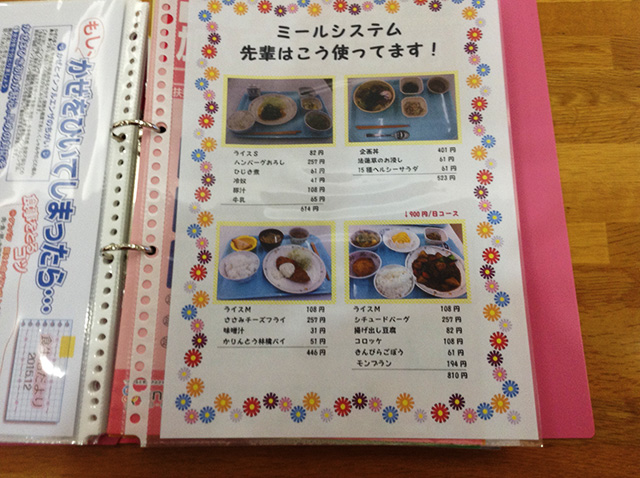 ミールシステム
先輩はこう使ってます！
ライスS 82円
ハンバーグおろし 257円
ひじき煮 61円
冷奴 41円
豚汁 108円
牛乳 65円
614円
企画丼 401円
法蓮草のお浸し 61円
15種ヘルシーサラダ 61円
523円
ライスM 108円
ささみチーズフライ 257円
味噌汁 31円
かりんとう林檎パイ 51円
446円
↓900円/日コース
ライスM 108円
シチュードバーグ 257円
揚げ出し豆腐 82円
コロッケ 108円
きんぴらごぼう 61円
モンブラン 194円
810円
もし、かぜをひいてしまったら…
2015.12